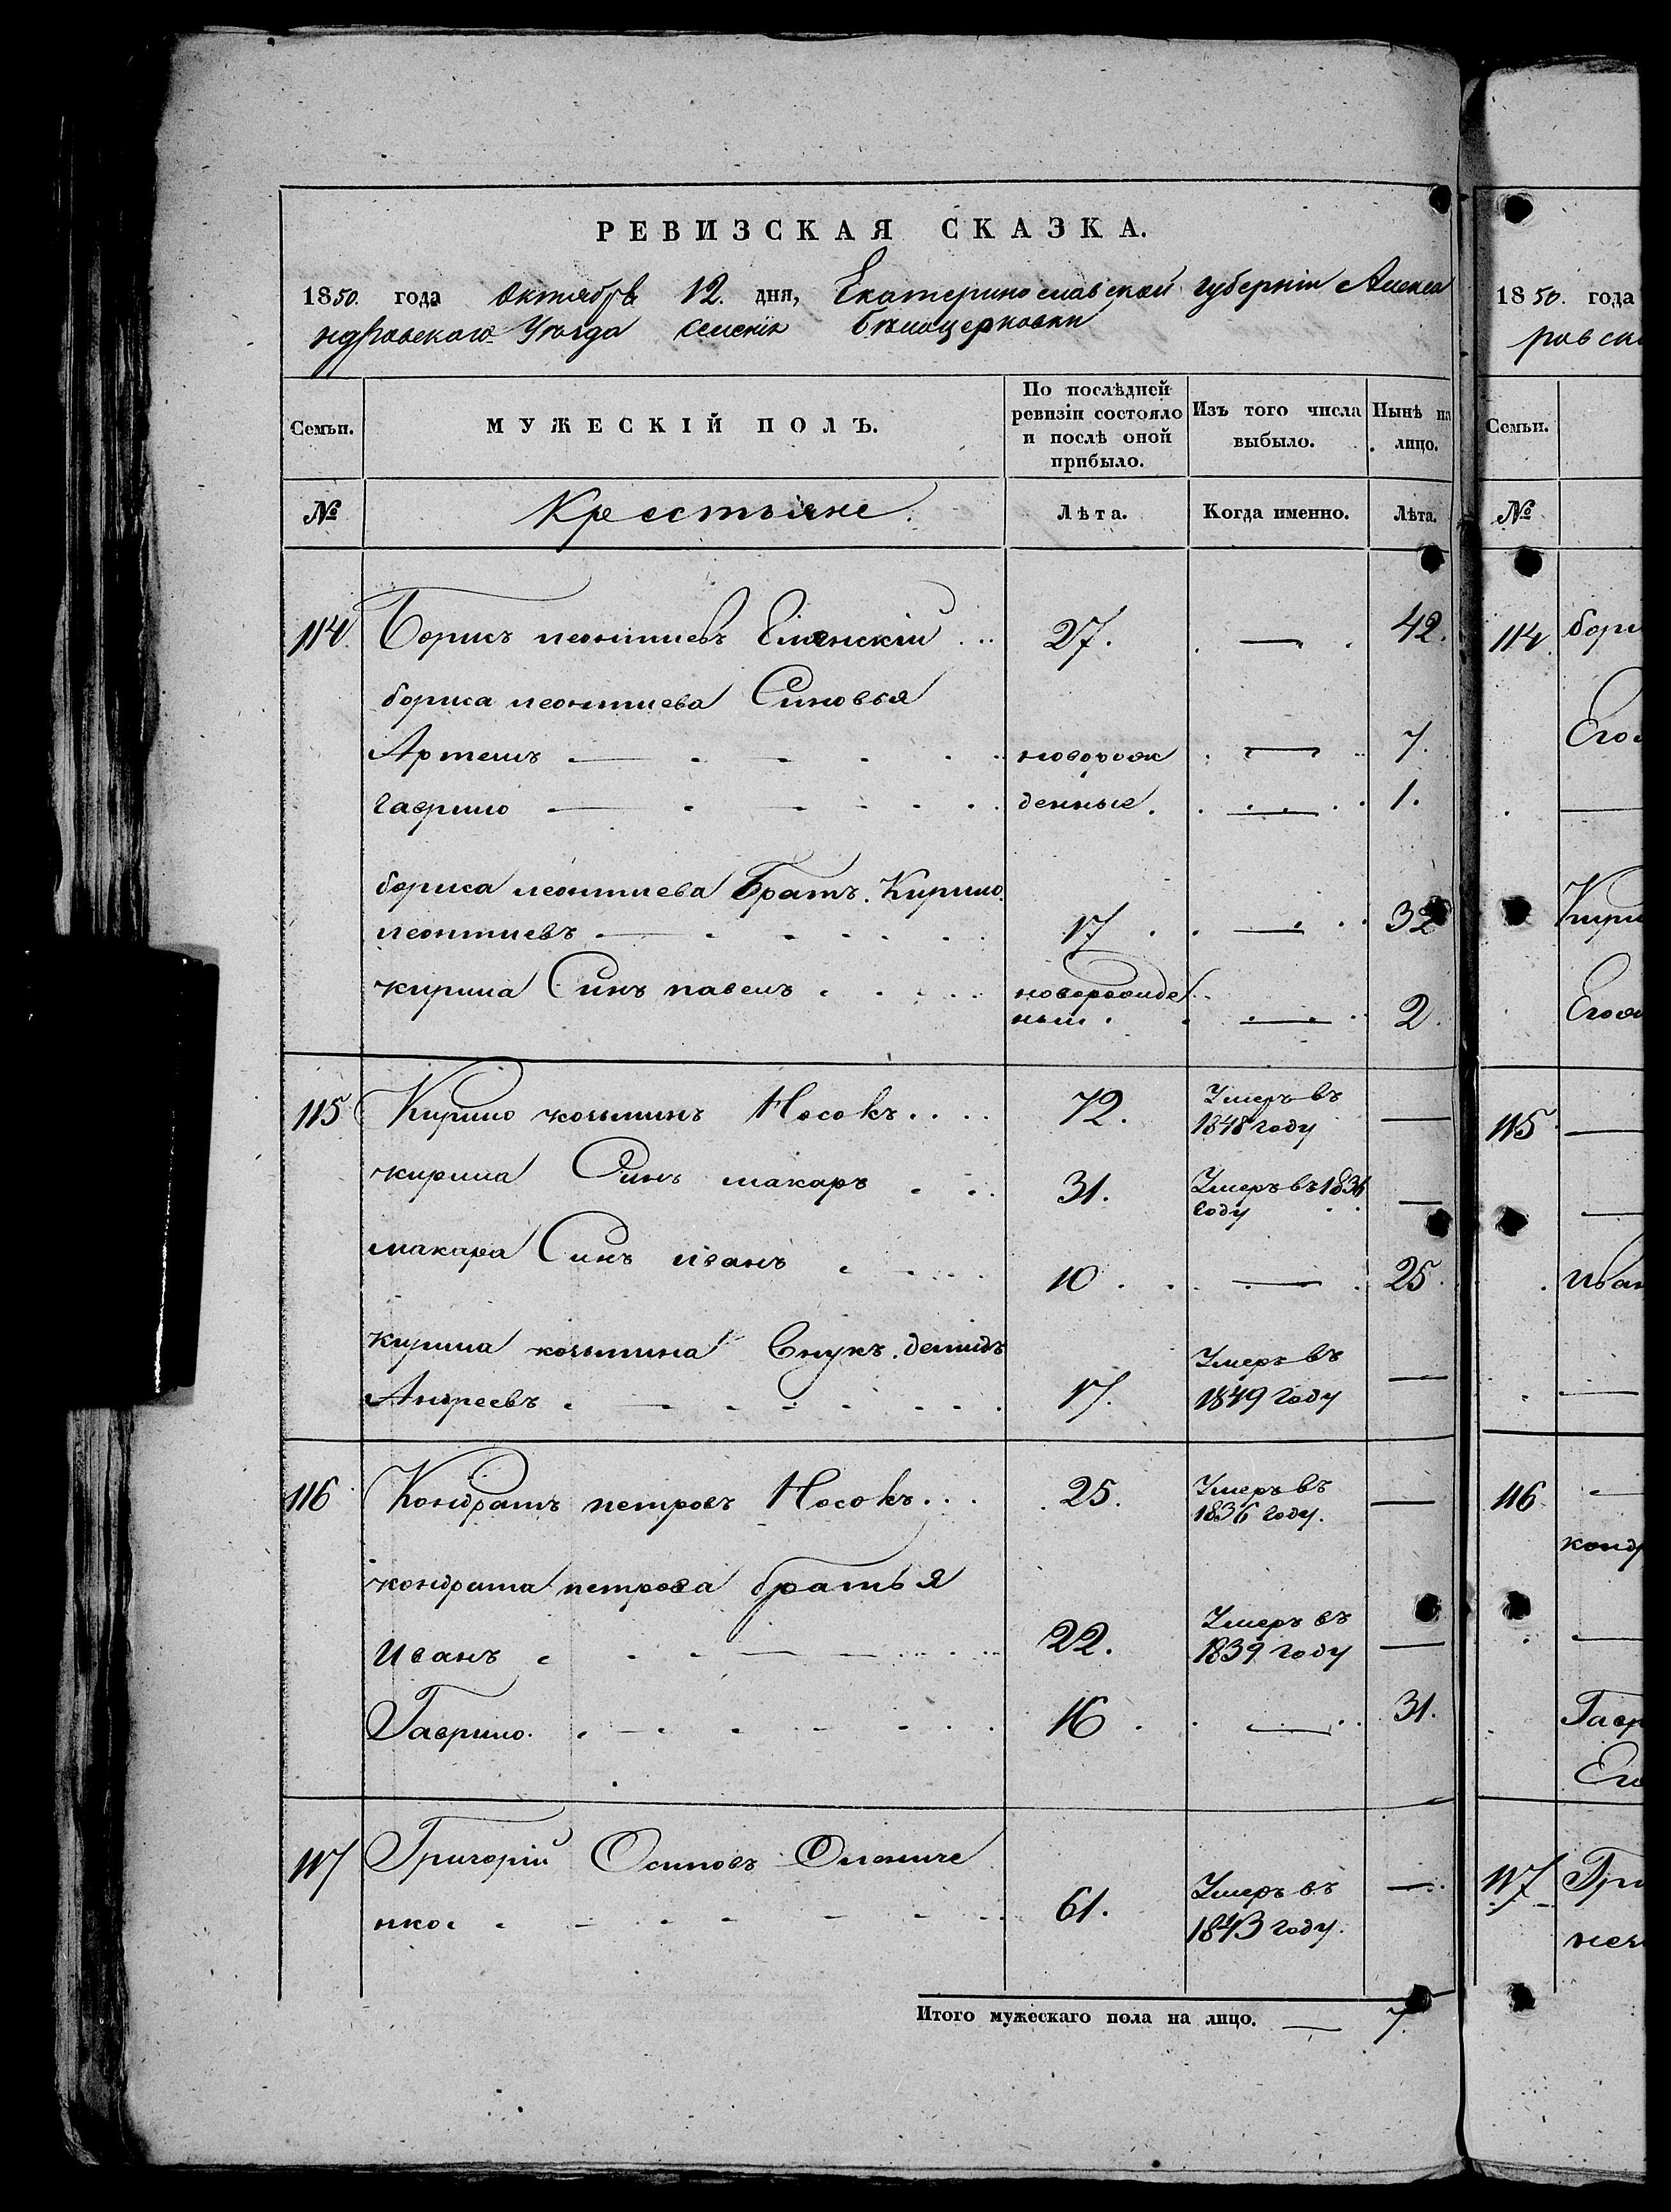 РЕВИЗСКАЯ СКАЗКА.
1850. года октября 12. дня, Екатеринославской губерніи Алекса
ндровского Уѣзда селенія Бѣлоцерковки
Семьи. МУЖЕСКІЙ ПОЛЪ. По послѣдней ревизіи состояло и послѣ оной прибыло. Изъ того числа выбыло. Нынѣ на лицо.
№ Крестьяне. Лѣта. Когда именно. Лѣта.
114 Борисъ леонтиевъ .. 27. — 42.
бориса леонтиева Синовья
Артемъ — новорож — 7.
гаврило — денные. — 1.
бориса леонтиева Братъ. Кирило
леонтиевъ — 17 — 32
кирила Синъ павелъ новорожде
ный. — 2.
115 Кирило Носокъ.... 72. Умеръ въ
1848 году —
кирила Синъ макаръ 31. Умеръ въ 1836
году —
макара Синъ иванъ 10. — 25.
кирила Внукъ. демидъ
Андреевъ 17. Умеръ въ
1849 году —
116 Кондратъ петровъ Носокъ... 25. Умеръ въ
1836 году. —
кондрата петрова братья
Иванъ 22. Умеръ въ
1839 году —
Гаврило. 16 — 31.
117 Григорій Осиповъ Олениче
нко 61. Умеръ въ
1843 году. —
Итого мужескаго пола на лицо. — 7.
1850. года
ровск
Семьи.
№
114 бори
Его
Кири
Егож
115 —
Иван
116 —
конд
Гавр
Его
117 Гри